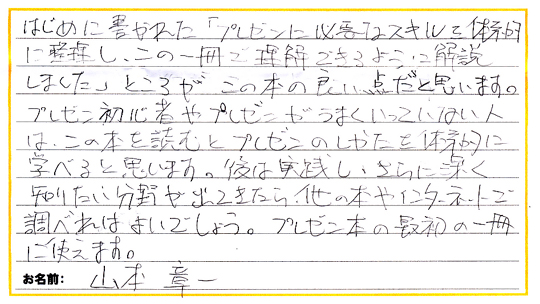 はじめに書かれた「プレゼンに必要なスキルを体系的
に整理し、この一冊で理解できるように解説
しました」ところが この本の良い点だと思います。
プレゼン初心者やプレゼンがうまくいっていない人
は、この本を読むとプレゼンのしかたを体系的に
学べると思います。後は実践し、さらに深く
知りたい分野が出てきたら、他の本やインターネットで
調べればよいでしょう。プレゼン本の最初の一冊
に使えます。
お名前: 山本 章一